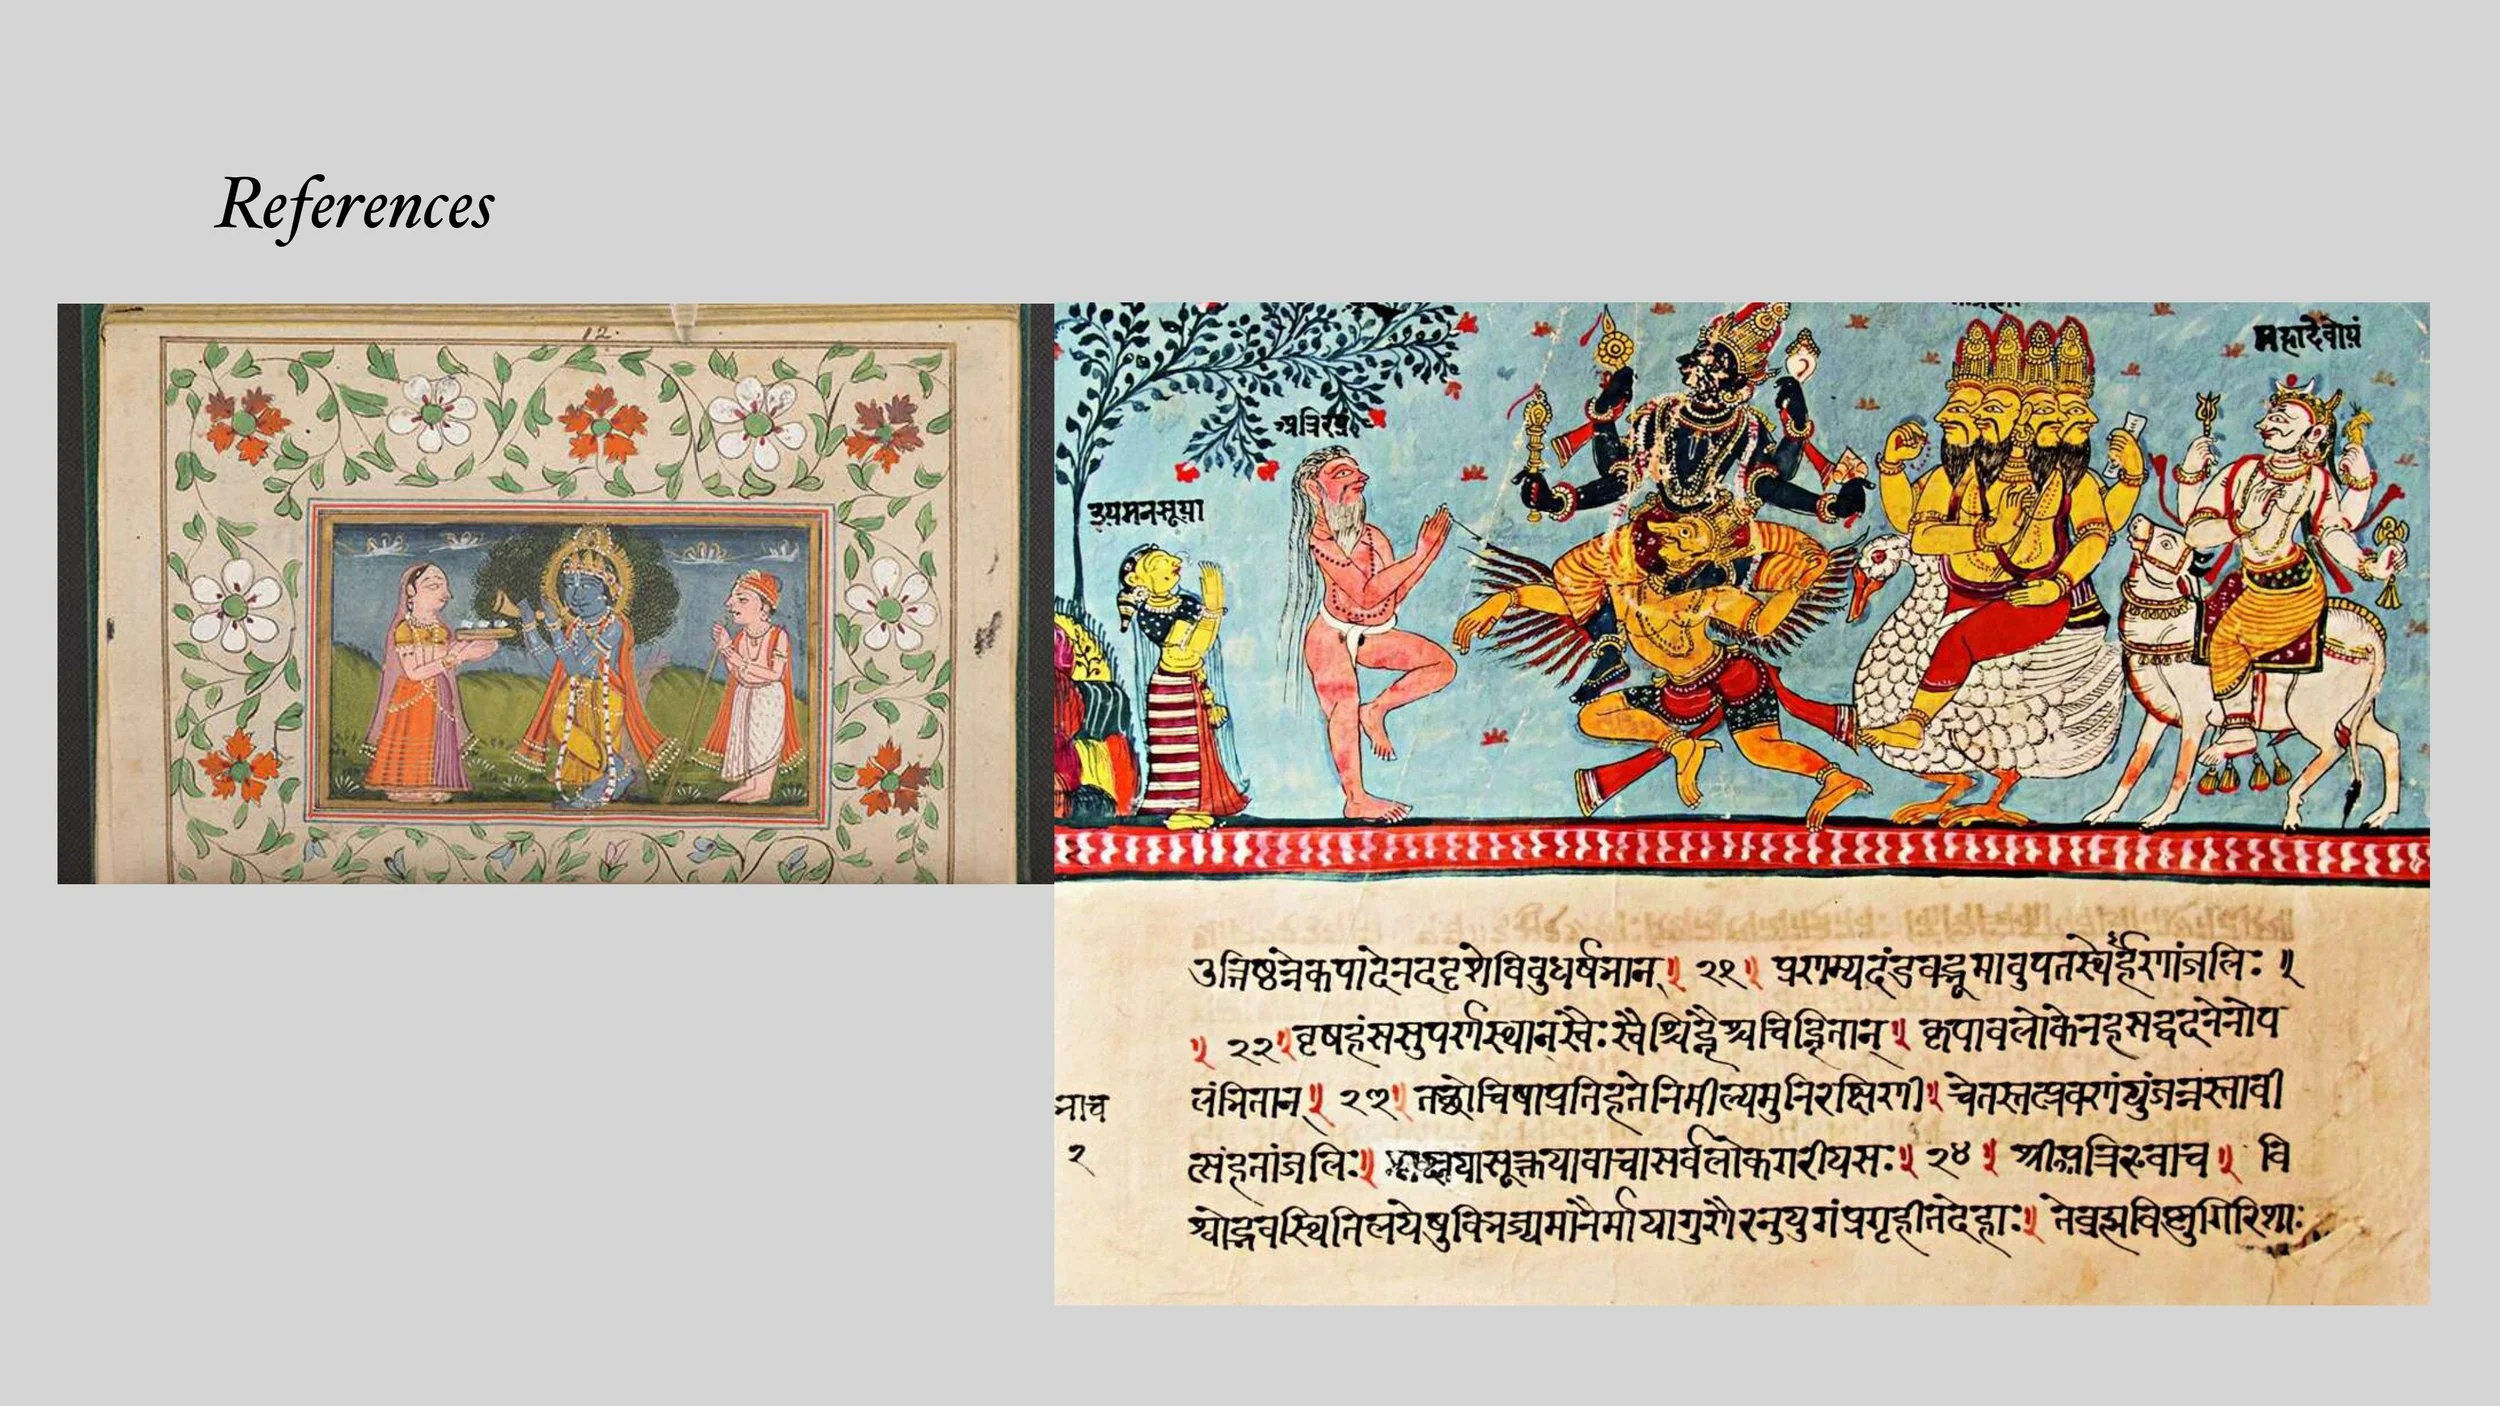 References
12.
महादेवोयं
अत्रिरयं
इयमनसूया
उत्तिष्ठन्नेकपादेन ददृशे विबुधर्षभान् ॥ २१ ॥ प्रणम्य दंडवद्भूमावुपतस्थेर्हणांजलिः ॥
॥ २२ ॥ वृषहंससुपर्णस्थान् स्वैः स्वैश्चिह्नैश्च चिह्नितान् ॥ कृपावलोकेन हसद्वदनेनोप
लंभितान् ॥ २३ ॥ तद्रोचिषा प्रतिहते निमील्य मुनिरक्षिणी ॥ चेतस्तत्प्रवणं युंजन्नस्तावी
त्संहतांजलिः ॥ श्लक्ष्णया सूक्तया वाचा सर्वलोकगरीयसः ॥ २४ ॥ श्रीअत्रिरुवाच ॥ वि
श्वोद्भवस्थितिलयेषु विभज्यमानैर्मायागुणैरनुयुगं प्रगृहीतदेहाः ॥ ते ब्रह्मविष्णुगिरिशाः
२